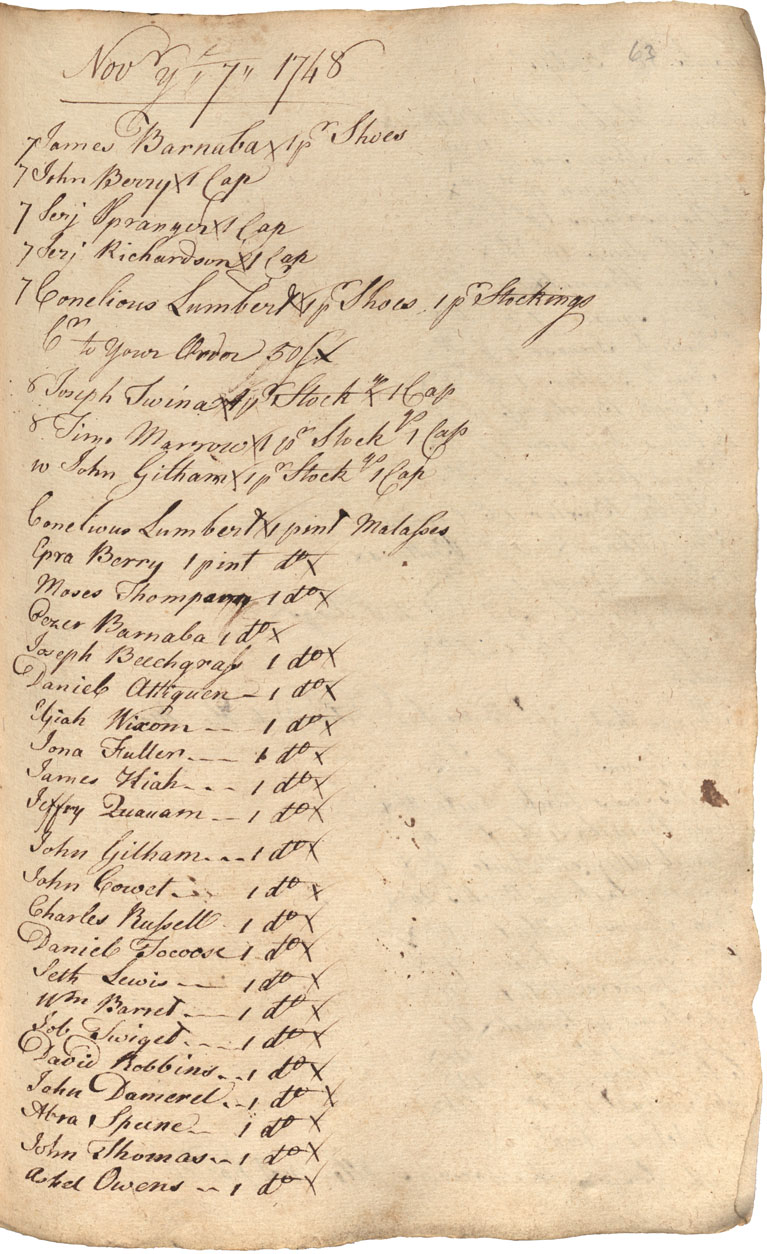 63
Novr ye 7th 1748
7 James Barnaba x 1 pr Shoes
7 John Berry x 1 Cap
7 Serj Spranger x 1 Cap
7 Serj Richardson x 1 Cap
7 Conelious Lumbert x 1 pr Shoes 1 pr Stockings
Cr to Your Order 50/ x
8 Joseph Swina x 1 pr Stockgs x 1 Cap
8 Timo Marrow x 1 pr Stockgs 1 Cap
10 John Gilham x 1 pr Stockgs 1 Cap
Conelious Lumbert x 1 pint Malasses
Epra Berry 1 pint do x
Moses Thompann 1 do x
Eezer Barnaba 1 do x
Joseph Beechgrass 1 do x
Daniel Attiquen - 1 do x
Eljiah Wixom - - 1 do x
Jona Fuller - - 1 do x
James Hiah - - - 1 do x
Jeffry Quauam - - 1 do x
John Gilham - - - 1 do x
John Cowet - - 1 do x
Charles Russell 1 do x
Daniel Tocoose 1 do x
Seth Lewis - - 1 do x
Wm Barret - - 1 do x
Job Twiget - - - 1 do x
David Robbins - - 1 do x
John Damerel - - 1 do x
Abra Speene - 1 do x
John Thomas - - 1 do x
Owens - - 1 do x